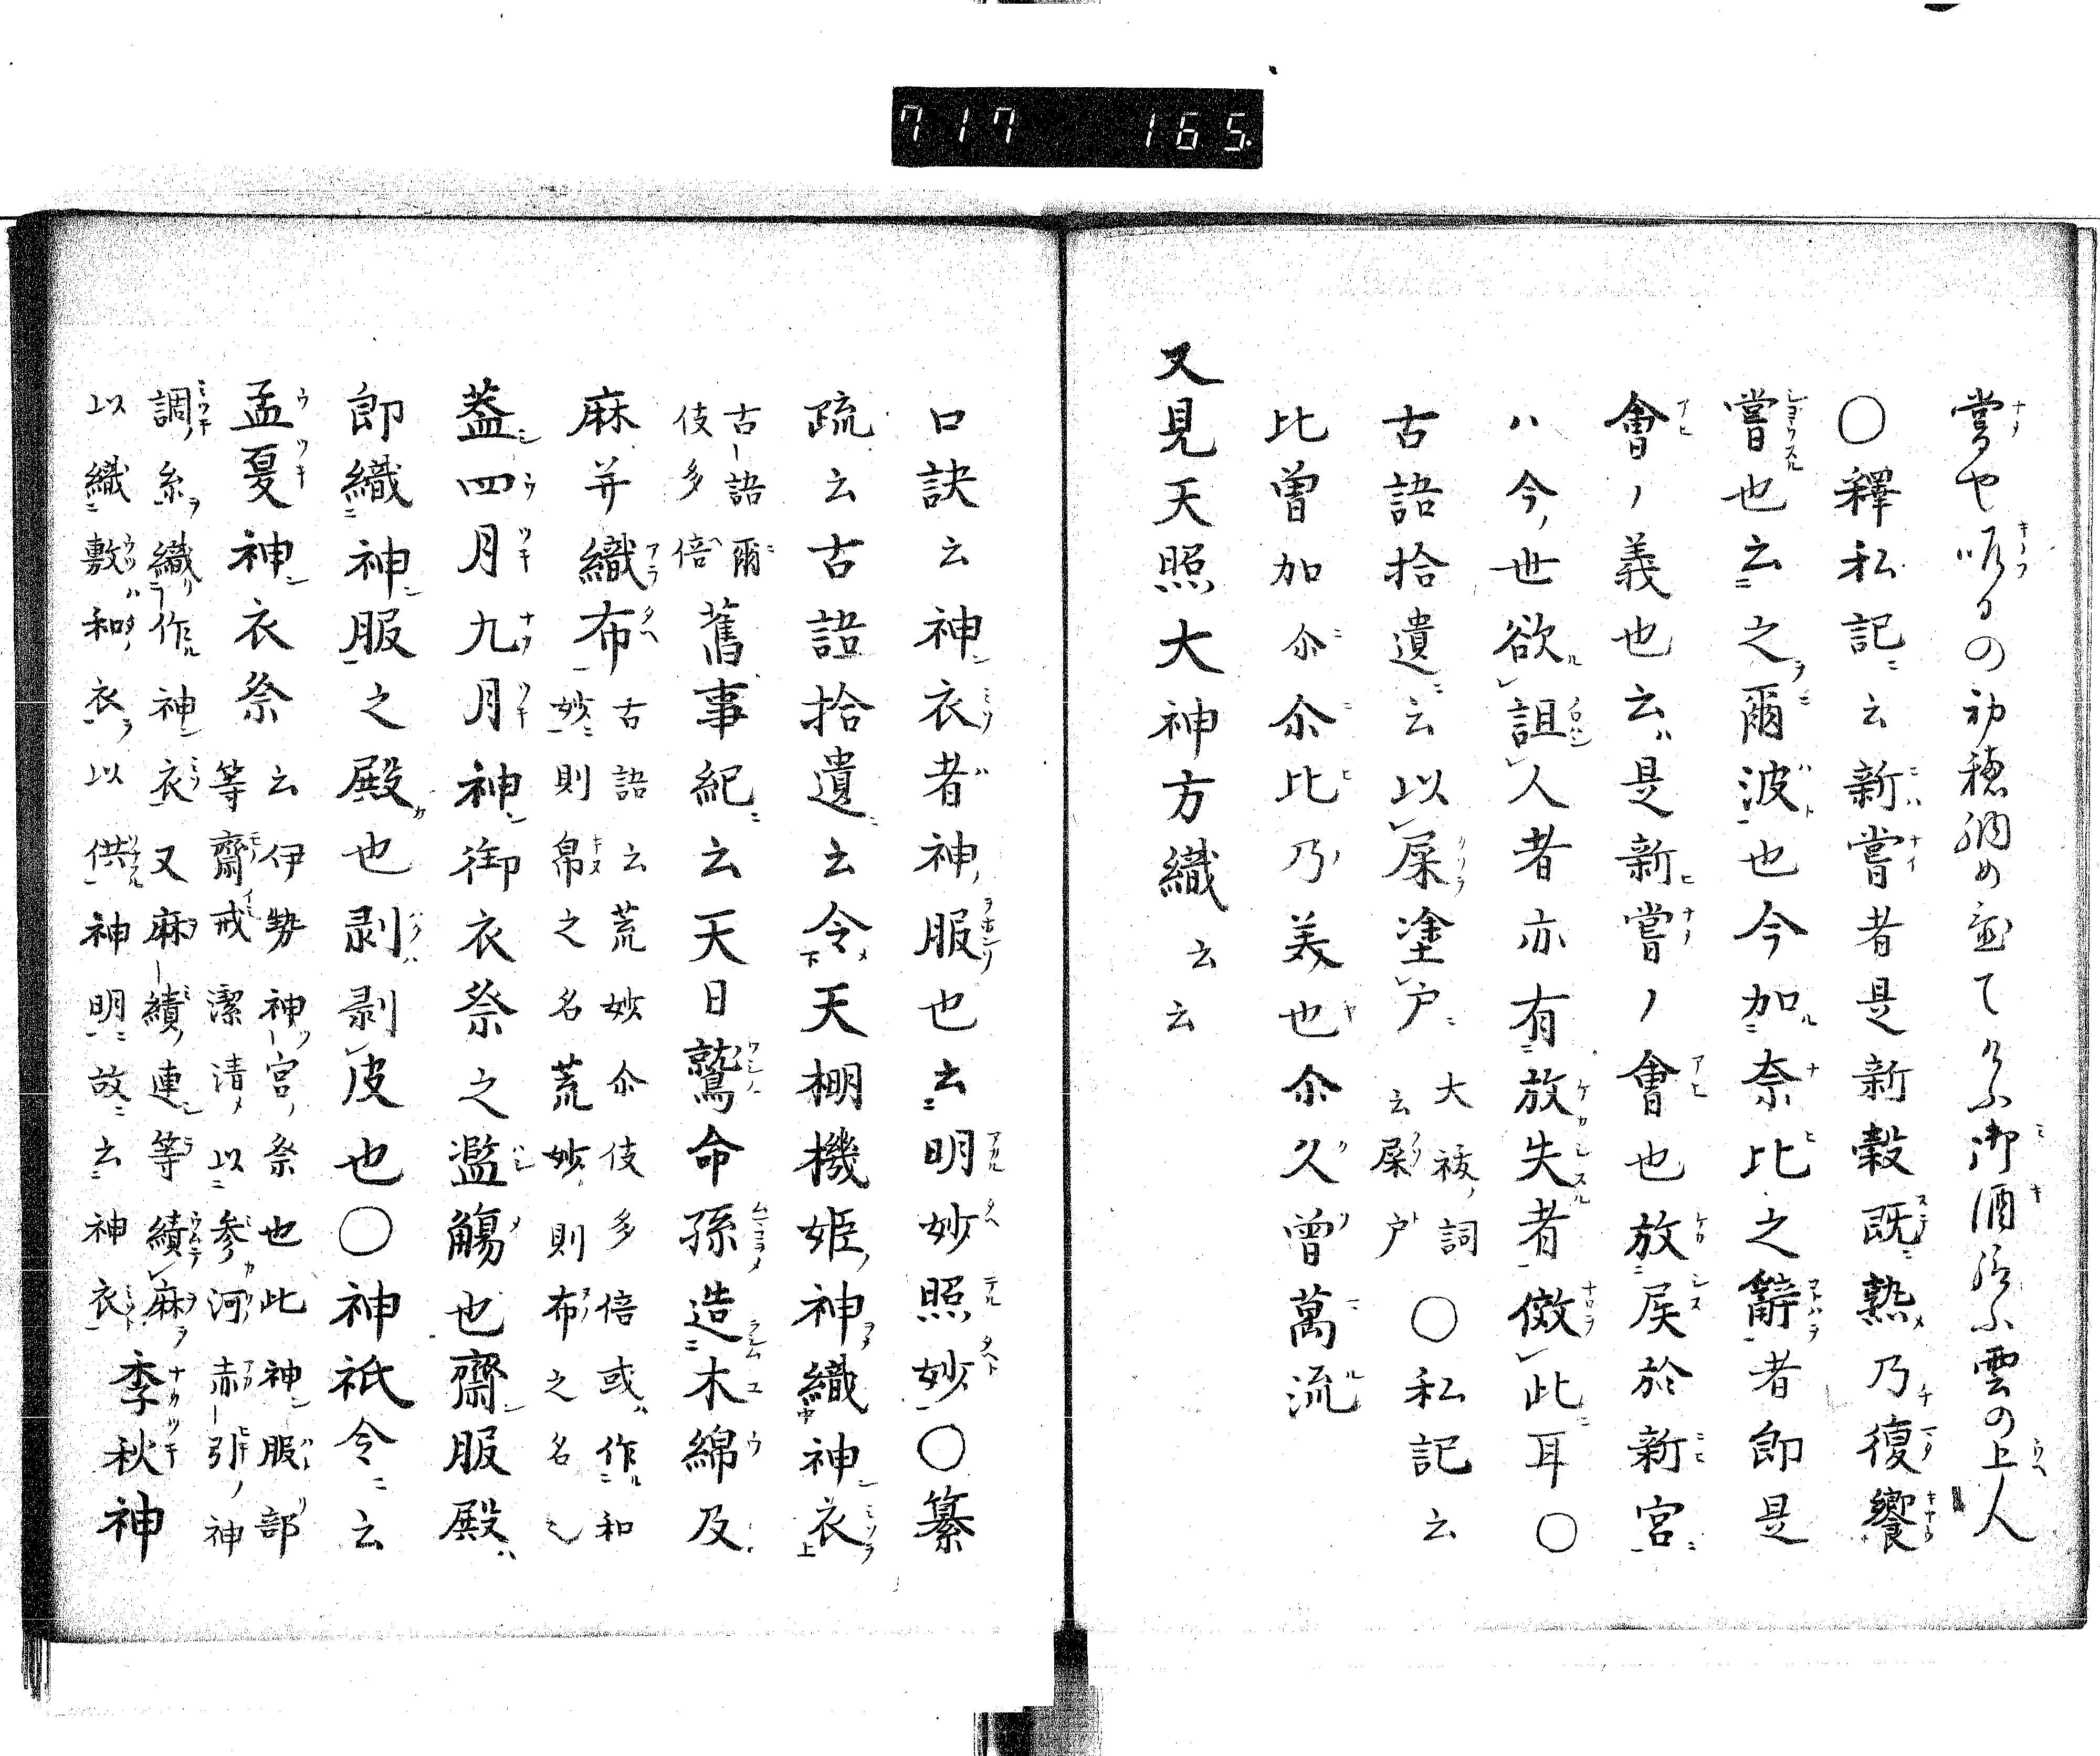 717 165
嘗や昨日の初穂納め並てけふ御酒給ふ雲の上人
〇釋私記云新嘗者是新穀既熟乃復饗
嘗也云之爾波也今加奈比之辭者即是
會ノ義也云ハ是新嘗ノ會也放𡱁於新宮
ハ今世欲詛人者亦有放失者倣此耳〇
古語拾遺云以屎塗戸
大祓詞
云屎戸
〇私記云
比曽加尒尒比乃美也尒久曽萬流
又見天照大神方織云云
口訣云神衣者神服也云明妙照妙〇纂
疏云古語拾遺云令天棚機姫神織神衣
古語爾
伎多倍
舊事紀云天日鷲命孫造木綿及
麻并織布
古語云荒妙尒伎多倍或作和
妙則帛之名荒妙則布之名也
蓋四月九月神御衣祭之濫觴也齋服殿
即織神服之殿也剥剥皮也〇神祇令云
孟夏神衣祭云
伊勢神宮祭也此神服部
等齋戒潔清以参河赤引神
調糸織作神衣又麻績連等績麻
以織敷和衣以供神明故云神衣
季秋神